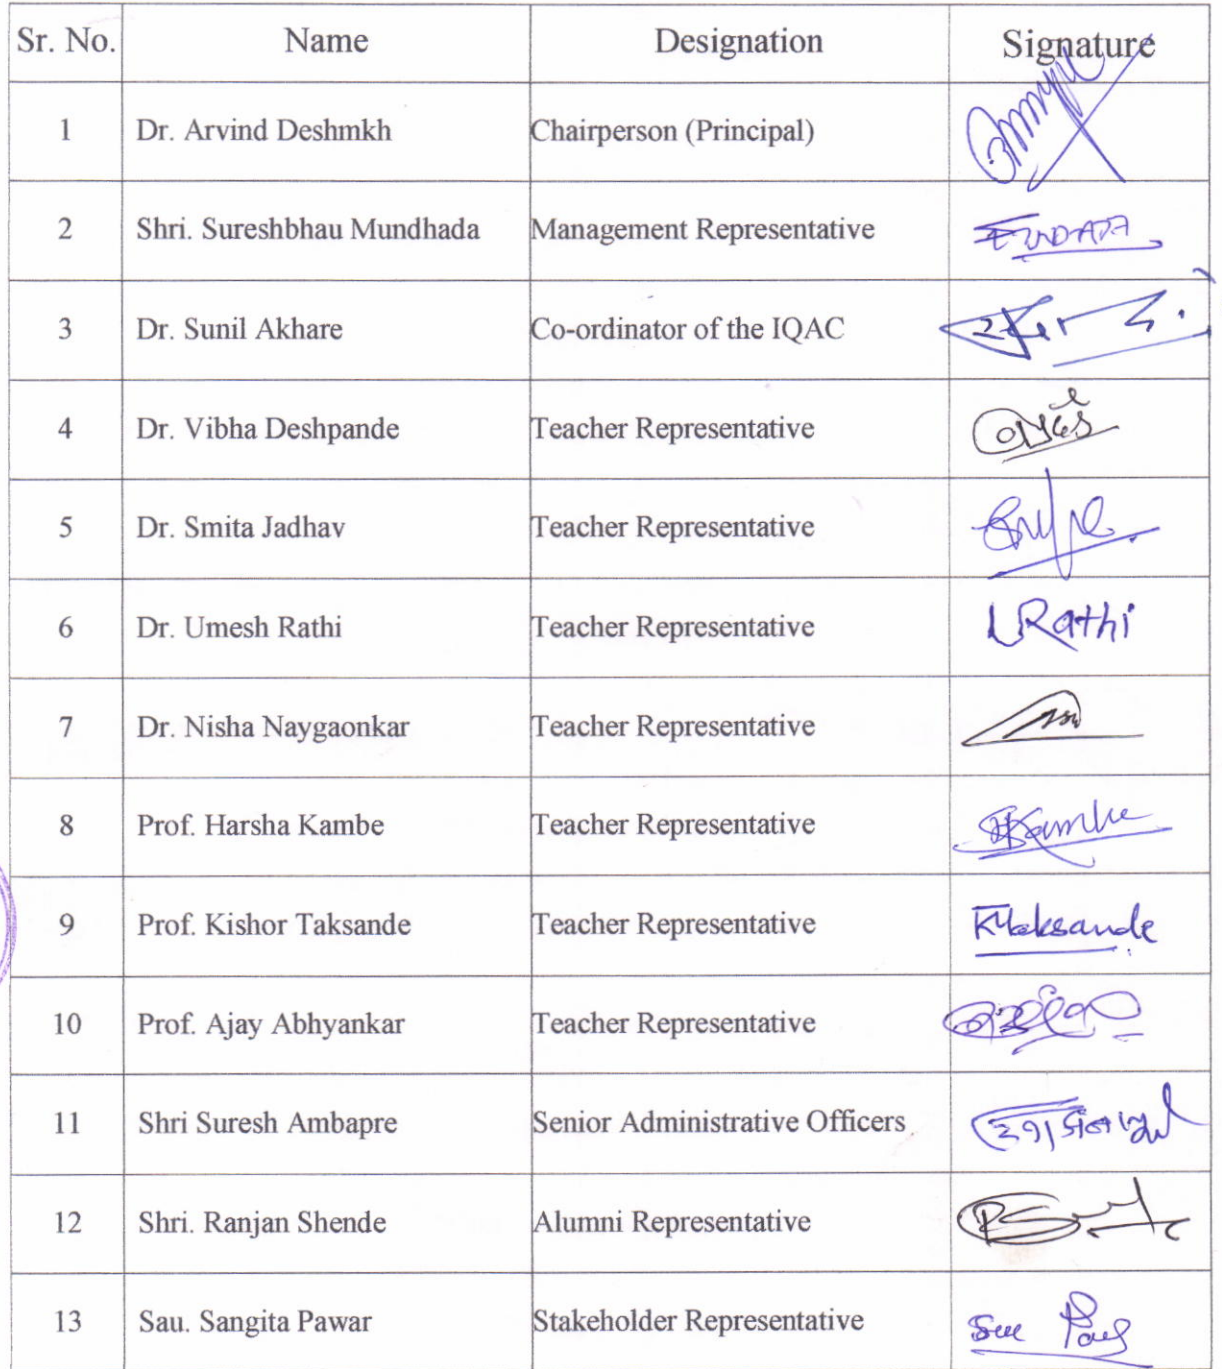 Sr. No. Name Designation Signature
1 Dr. Arvind Deshmkh Chairperson (Principal)
2 Shri. Sureshbhau Mundhada Management Representative
3 Dr. Sunil Akhare Co-ordinator of the IQAC
4 Dr. Vibha Deshpande Teacher Representative
5 Dr. Smita Jadhav Teacher Representative
6 Dr. Umesh Rathi Teacher Representative URathi
7 Dr. Nisha Naygaonkar Teacher Representative
8 Prof. Harsha Kambe Teacher Representative HKambe
9 Prof. Kishor Taksande Teacher Representative KTaksande
10 Prof. Ajay Abhyankar Teacher Representative
11 Shri Suresh Ambapre Senior Administrative Officers
12 Shri. Ranjan Shende Alumni Representative
13 Sau. Sangita Pawar Stakeholder Representative